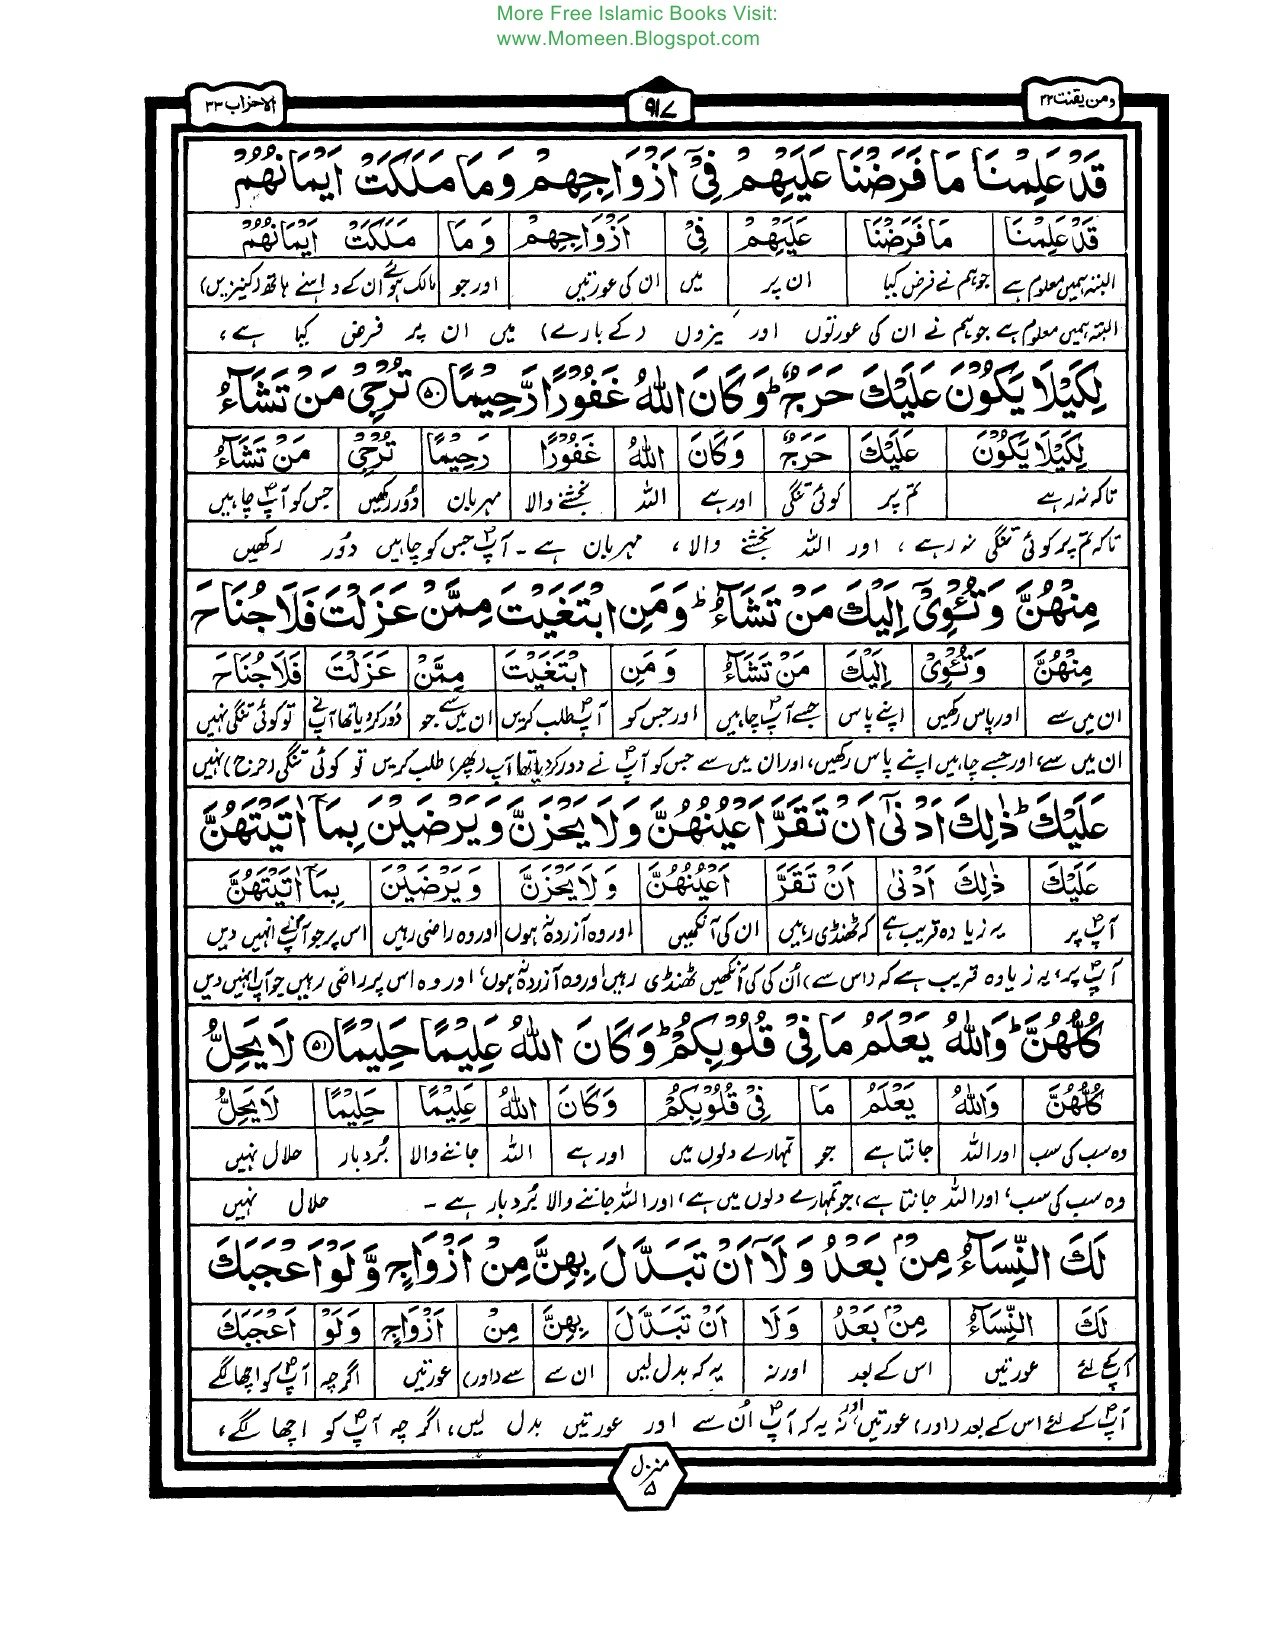 More Free Islamic Books Visit:
www.Momeen.Blogspot.com
ومن یقنت ۲۲
۹۱۷
الاحزاب ۳۳
قَدْ عَلِمْنَا مَا فَرَضْنَا عَلَيْهِمْ فِيْٓ اَزْوَاجِهِمْ وَمَا مَلَكَتْ اَيْمَانُهُمْ
قَدْ عَلِمْنَا مَا فَرَضْنَا عَلَيْهِمْ فِيْ اَزْوَاجِهِمْ وَمَا مَلَكَتْ اَيْمَانُهُمْ
البتہ ہمیں معلوم ہے جو ہم نے فرض کیا ان پر میں ان کی عورتیں اور جو مالک ہوئے ان کے داہنے ہاتھ (کنیزیں)
البتہ ہمیں معلوم ہے جو ہم نے ان کی عورتوں اور کنیزوں (کے بارے) میں ان پر فرض کیا ہے،
لِكَيْلَا يَكُوْنَ عَلَيْكَ حَرَجٌ ؕ وَكَانَ اللّٰهُ غَفُوْرًا رَّحِيْمًا ۵۰ تُرْجِيْ مَنْ تَشَآءُ
لِكَيْلَا يَكُوْنَ عَلَيْكَ حَرَجٌ وَكَانَ اللّٰهُ غَفُوْرًا رَحِيْمًا تُرْجِيْ مَنْ تَشَآءُ
تاکہ نہ رہے تم پر کوئی تنگی اور ہے اللہ بخشنے والا مہربان دُور رکھیں جس کو آپؐ چاہیں
تاکہ تم پر کوئی تنگی نہ رہے، اور اللہ بخشنے والا، مہربان ہے۔ آپؐ جس کو چاہیں دُور رکھیں
مِنْهُنَّ وَتُـْٔوِيْٓ اِلَيْكَ مَنْ تَشَآءُ ؕ وَمَنِ ابْتَغَيْتَ مِمَّنْ عَزَلْتَ فَلَا جُنَاحَ
مِنْهُنَّ وَتُـْٔوِيْ اِلَيْكَ مَنْ تَشَآءُ وَمَنِ ابْتَغَيْتَ مِمَّنْ عَزَلْتَ فَلَا جُنَاحَ
ان میں سے اور پاس رکھیں اپنے پاس جسے آپؐ چاہیں اور جس کو آپؐ طلب کریں ان میں سے جو دُور کر دیا تھا آپ نے تو کوئی تنگی نہیں
ان میں سے، اور جسے چاہیں اپنے پاس رکھیں، اور ان میں سے جس کو آپؐ نے دور کر دیا تھا آپ (پھر) طلب کریں تو کوئی تنگی (حرج) نہیں
عَلَيْكَ ؕ ذٰلِكَ اَدْنٰٓى اَنْ تَقَرَّ اَعْيُنُهُنَّ وَلَا يَحْزَنَّ وَيَرْضَيْنَ بِمَآ اٰتَيْتَهُنَّ
عَلَيْكَ ذٰلِكَ اَدْنٰى اَنْ تَقَرَّ اَعْيُنُهُنَّ وَلَا يَحْزَنَّ وَيَرْضَيْنَ بِمَآ اٰتَيْتَهُنَّ
آپؐ پر یہ زیادہ قریب ہے کہ ٹھنڈی رہیں ان کی آنکھیں اور وہ آزردہ نہ ہوں اور وہ راضی رہیں اس پر جو آپؐ نے انہیں دیں
آپؐ پر، یہ زیادہ قریب ہے کہ (اس سے) اُن کی کی آنکھیں ٹھنڈی رہیں اور وہ آزردہ نہ ہوں، اور وہ اس پر راضی رہیں جو آپؐ انہیں دیں
كُلُّهُنَّ ؕ وَاللّٰهُ يَعْلَمُ مَا فِيْ قُلُوْبِكُمْ ؕ وَكَانَ اللّٰهُ عَلِيْمًا حَلِيْمًا ۵۱ لَا يَحِلُّ
كُلُّهُنَّ وَاللّٰهُ يَعْلَمُ مَا فِيْ قُلُوْبِكُمْ وَكَانَ اللّٰهُ عَلِيْمًا حَلِيْمًا لَا يَحِلُّ
وہ سب کی سب اور اللہ جانتا ہے جو تمہارے دلوں میں اور ہے اللہ جاننے والا بُردبار حلال نہیں
وہ سب کی سب، اور اللہ جانتا ہے، جو تمہارے دلوں میں ہے، اور اللہ جاننے والا بُردبار ہے۔ حلال نہیں
لَكَ النِّسَآءُ مِنْۢ بَعْدُ وَلَآ اَنْ تَبَدَّلَ بِهِنَّ مِنْ اَزْوَاجٍ وَّلَوْ اَعْجَبَكَ
لَكَ النِّسَآءُ مِنْۢ بَعْدُ وَلَا اَنْ تَبَدَّلَ بِهِنَّ مِنْ اَزْوَاجٍ وَلَوْ اَعْجَبَكَ
آپؐ کے لئے عورتیں اس کے بعد اور نہ یہ کہ بدل لیں ان سے سے (اور) عورتیں اگرچہ آپؐ کو اچھا لگے
آپؐ کے لئے اس کے بعد (اور) عورتیں، اور نہ یہ کہ آپؐ اُن سے اور عورتیں بدل لیں، اگرچہ آپؐ کو اچھا لگے،
منزل ۵